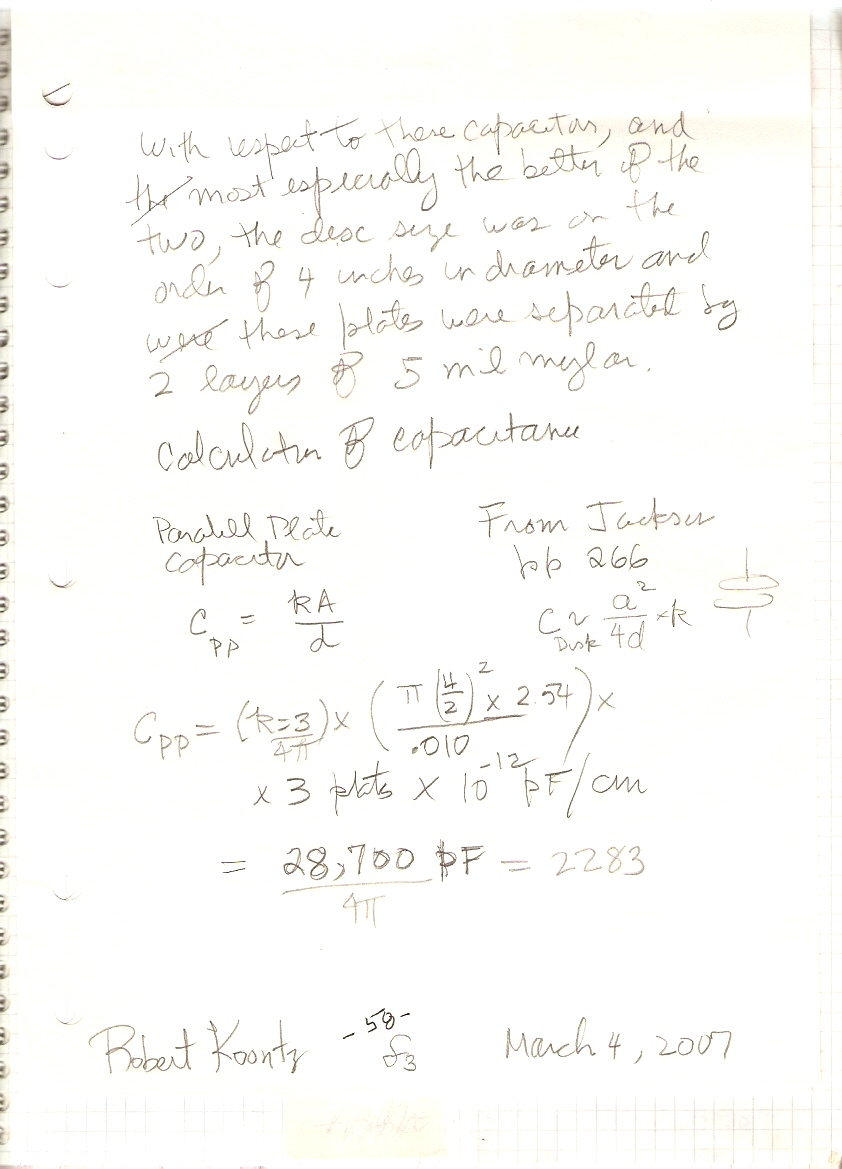 With respect to these capacitors, and
the most especially the better of the
two, the desc size was on the
order of 4 inches in diameter and
were these plates were separated by
2 layers of 5 mil mylar.
Calculation of capacitance
Parallel Plate
Capacitor
C_pp = kA/d
From Jackson
pp 266
C_Disk ~ a²/4d × k
C_pp = (k=3/4π) × (π(4/2)² × 2.54/.010) ×
× 3 plates × 10⁻¹² pF/cm
= 28,700 pF/4π = 2283
Robert Koontz
-58-
March 4, 2007